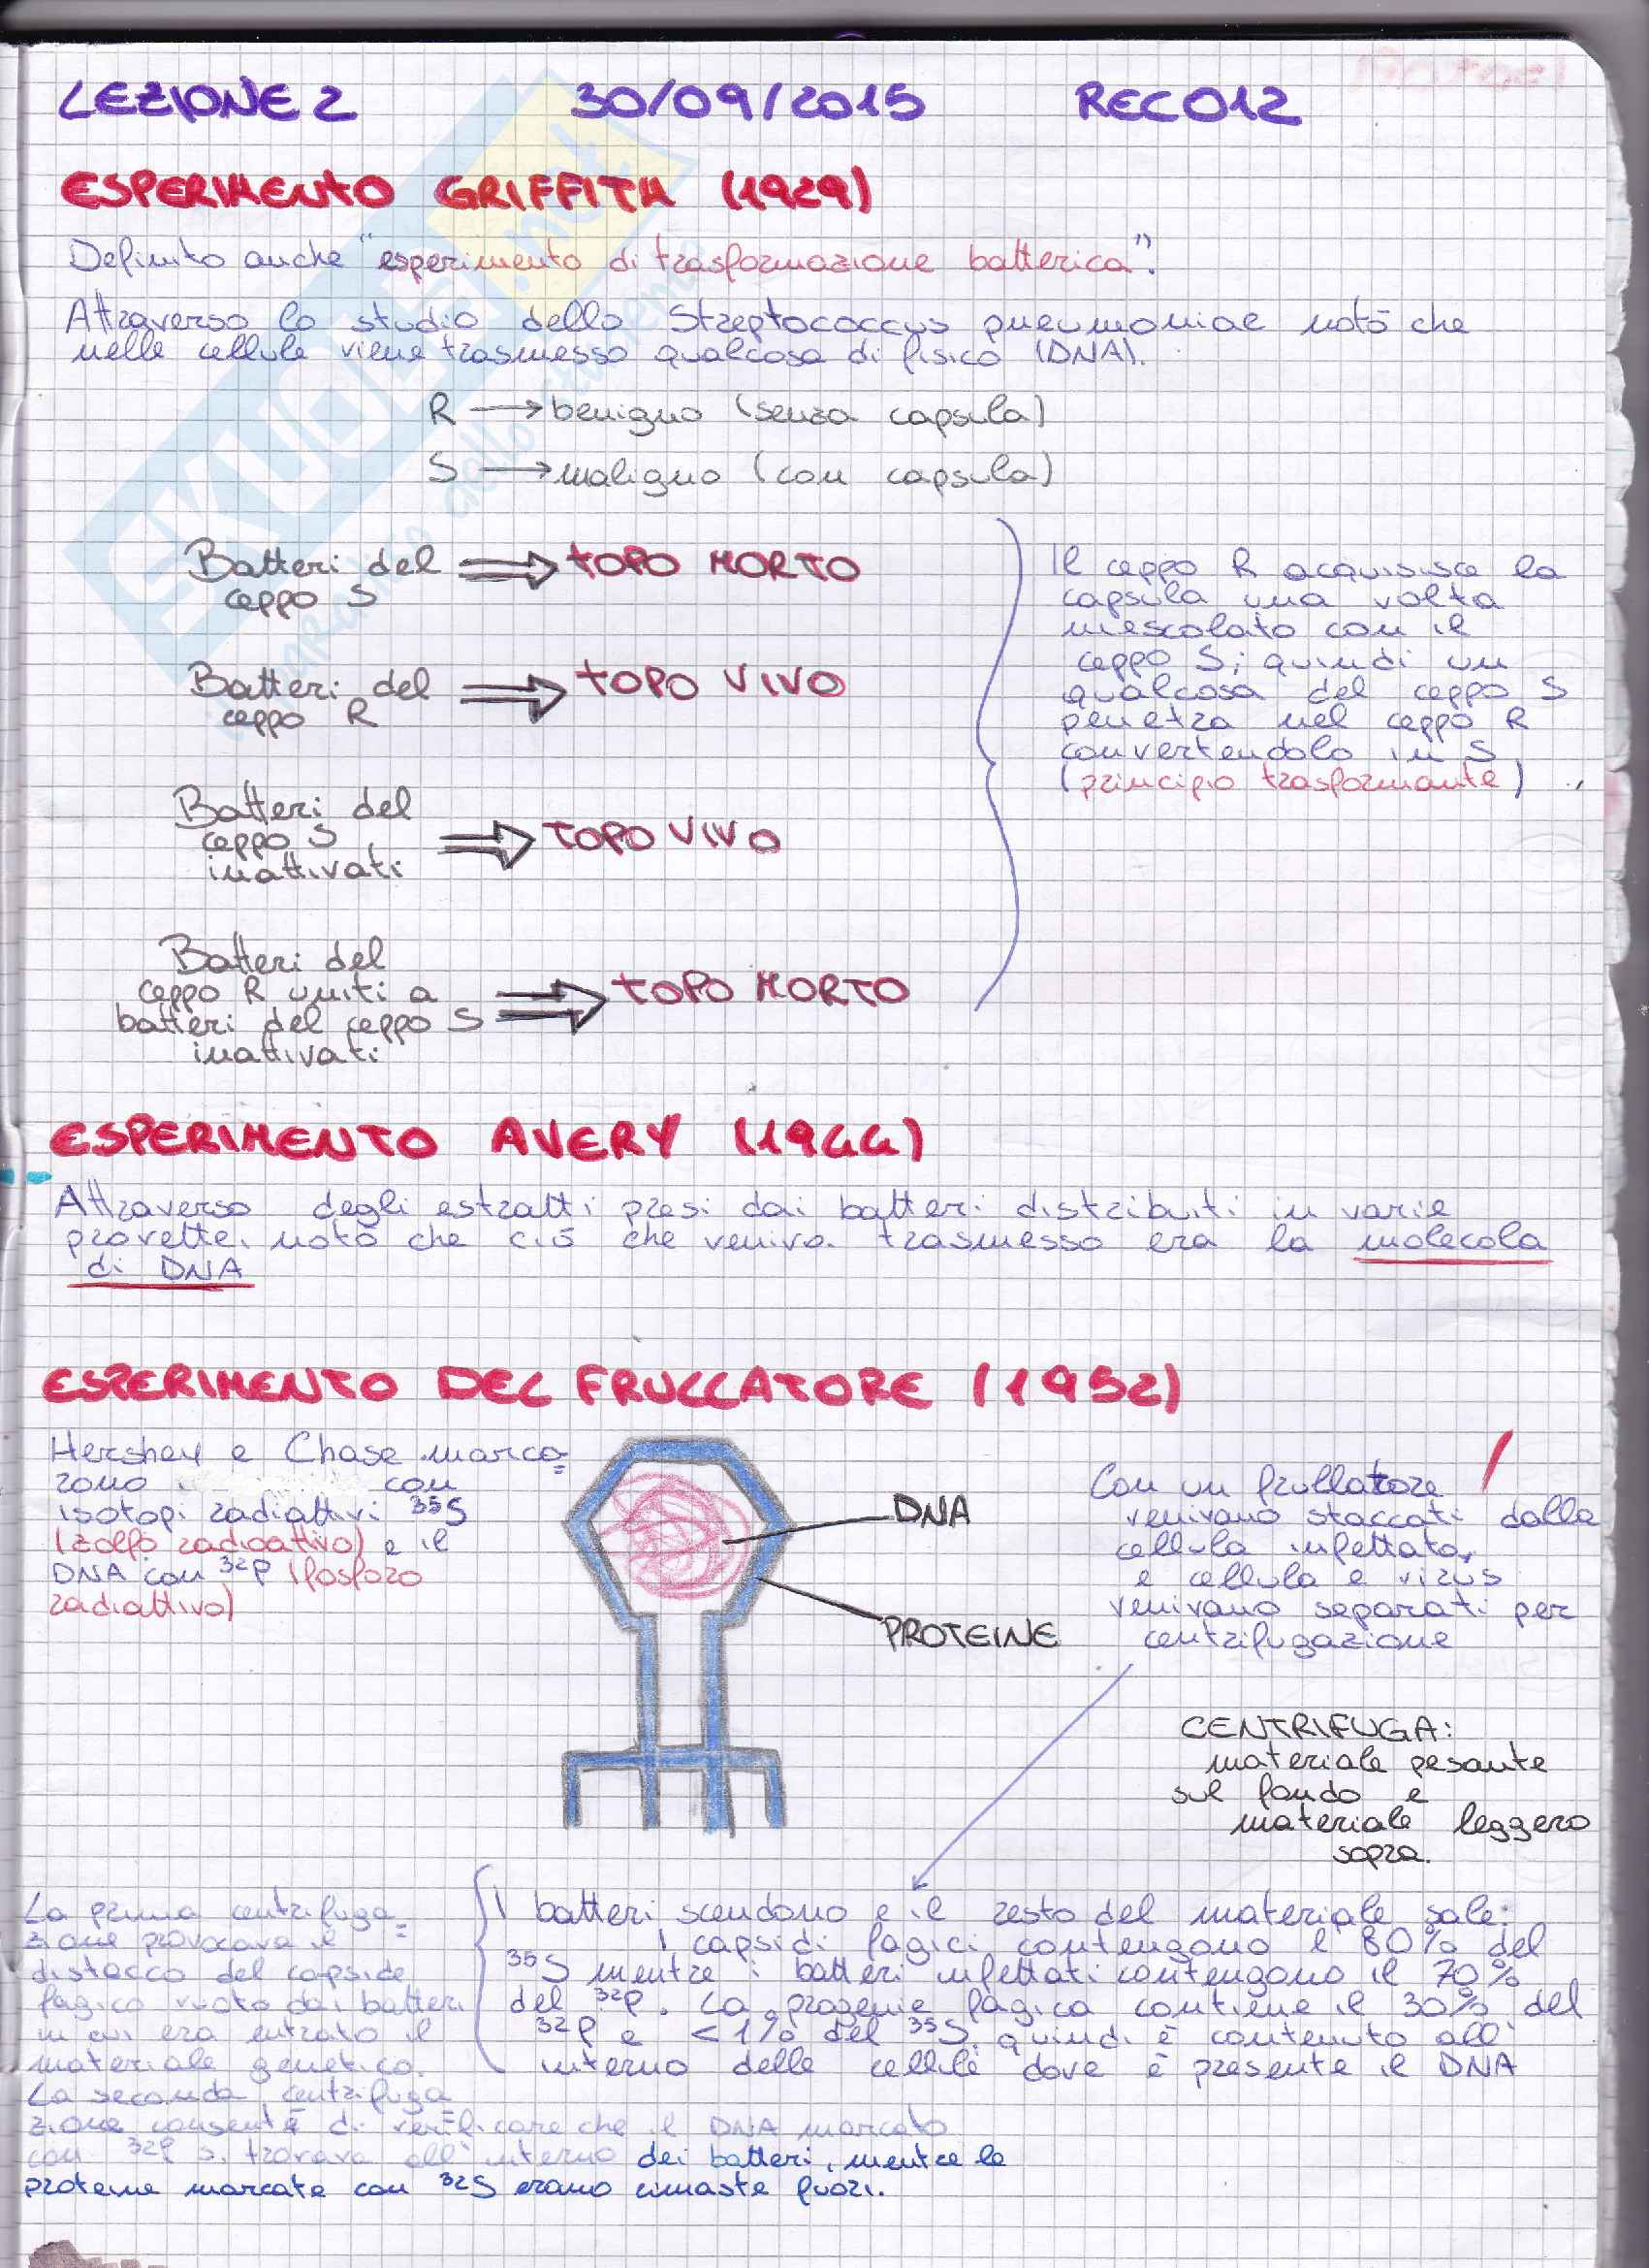 LEZIONE 2 30/09/2015 REC012
ESPERIMENTO GRIFFITH (1929)
Definito anche "esperimento di trasformazione batterica".
Attraverso lo studio dello Streptococcus pneumoniae notò che
nelle cellule viene trasmesso qualcosa di fisico (DNA).
R → benigno (senza capsula)
S → maligno (con capsula)
Batteri del ⇒ TOPO MORTO
ceppo S
Batteri del ⇒ TOPO VIVO
ceppo R
Batteri del
ceppo S ⇒ TOPO VIVO
inattivati
Batteri del
ceppo R uniti a ⇒ TOPO MORTO
batteri del ceppo S
inattivati
Il ceppo R acquisisce la
capsula una volta
mescolato con il
ceppo S; quindi un
qualcosa del ceppo S
penetra nel ceppo R
convertendolo in S
(principio trasformante)
ESPERIMENTO AVERY (1944)
Attraverso degli estratti presi dai batteri distribuiti in varie
provette, notò che ciò che veniva trasmesso era la molecola
di DNA
ESPERIMENTO DEL FRULLATORE (1952)
Hershey e Chase marca=
rono con
isotopi radiattivi 35S
(zolfo radioattivo) e il
DNA con 32P (fosforo
radiattivo)
DNA
PROTEINE
Con un frullatore
venivano staccati dalla
cellula infettata,
e cellula e virus
venivano separati per
centrifugazione
CENTRIFUGA:
materiale pesante
sul fondo e
materiale leggero
sopra.
I batteri scendono e il resto del materiale sale:
I capsidi fagici contengono l'80% del
35S mentre i batteri infettati contengono il 70%
del 32P. La progenie fagica contiene il 30% del
32P e <1% del 35S, quindi è contenuto all'
interno delle cellule dove è presente il DNA
La prima centrifuga=
zione provocava il
distacco del capside
fagico vuoto dai batteri
in cui era entrato il
materiale genetico.
La seconda centrifuga
zione consentì di verificare che il DNA marcato
con 32P si trovava all'interno dei batteri, mentre le
proteine marcate con 32S erano rimaste fuori.